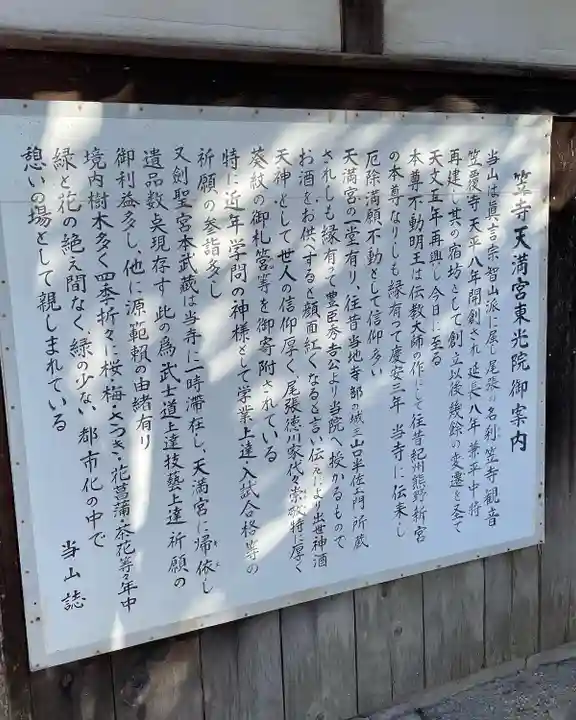 笠寺天満宮東光院御案内
当山は真言宗智山派に属し尾張の名刹笠寺観音
笠覆寺天平八年開創され延長八年兼平中将
再建し其の宿坊として創立以後幾餘の変遷を圣て
天文五年再興し今日に至る
本尊不動明王は伝教大師の作にして往昔紀州熊野新宮
の本尊なりしも縁有って慶安三年当寺に伝来し
厄除満願不動として信仰多い
天満宮の一堂有り、往昔当地寺部の城主山口半佐エ門所蔵
されしも縁有って豊臣秀吉公より当院へ授かるもので
お酒をお供へすると顔面紅くなると言い伝えにより出世神酒
天神として世人の信仰厚く尾張徳川家代々崇敬特に厚く
葵紋の御札筥等を御寄附されている
特に近年学問の神様として学業上達入試合格等の
祈願の参詣多し
又剣聖宮本武蔵は当寺に一時滞在し、天満宮に帰依し
遺品数点現存す 此の為武士道上達技藝上達祈願の
御利益多し、他に源範頼の由緒有り
境内樹木多く四季折々に桜・梅・さつき・花菖蒲・茶花等々年中
緑と花の絶え間なく緑の少ない都市化の中で
憩いの場として親しまれている
当山誌